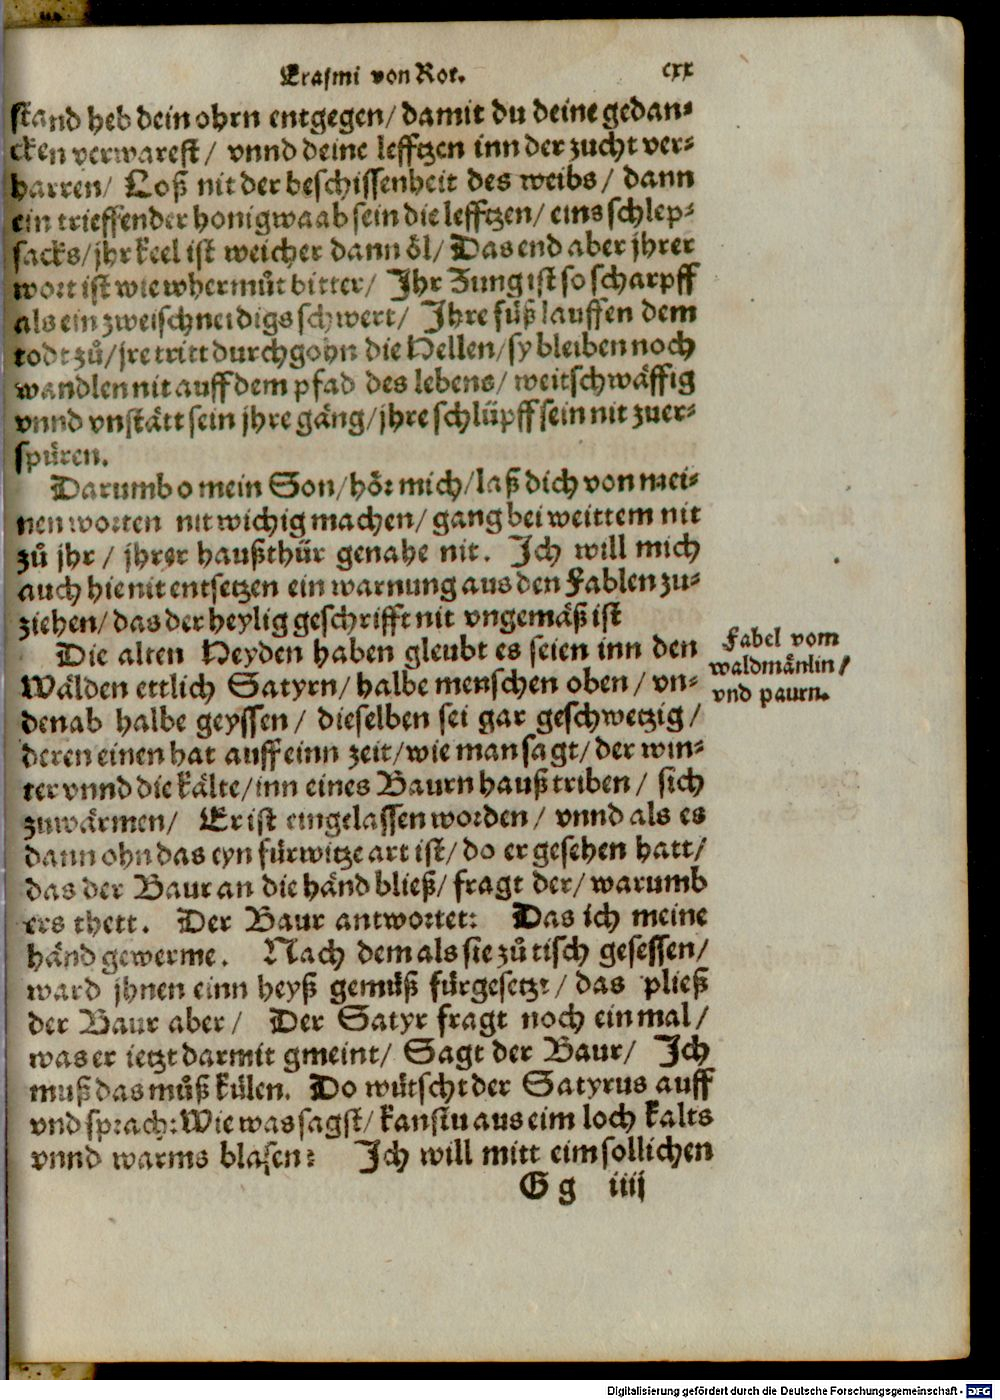 Erasmi von Rot.
cxx
stand heb dein ohrn entgegen/ damit du deine gedan⸗
cken verwarest/ vnnd deine lefftzen inn der zucht ver⸗
harren/ Loß nit der beschissenheit des weibs/ dann
ein trieffender honigwaab sein die lefftzen/ eins schlep⸗
sacks/ jhr keel ist weicher dann öl/ Das end aber jhrer
wort ist wie whermůt bitter/ Jhr Zung ist so scharpff
als ein zweischneidigs schwert/ Jhre fůß lauffen dem
todt zů/ jre tritt durchgohn die Hellen/ sy bleiben noch
wandlen nit auff dem pfad des lebens/ weitschwäffig
vnnd vnstätt sein jhre gäng/ jhre schlüpff sein nit zuer⸗
spüren.
Darumb o mein Son/ hör mich/ laß dich von mei⸗
nen worten nit wichig machen/ gang bei weittem nit
zů jhr/ jhrer haußthür genahe nit. Jch will mich
auch hie nit entsetzen ein warnung aus den Fablen zu⸗
ziehen/ das der heylig geschrifft nit vngemäß ist
Die alten Heyden haben gleubt es seien inn den
Wälden ettlich Satyrn/ halbe menschen oben/ vn⸗
denab halbe geyssen/ dieselben sei gar geschwetzig/
deren einen hat auff einn zeit/ wie man sagt/ der win⸗
ter vnnd die kälte/ inn eines Baurn hauß triben/ sich
zuwärmen/ Er ist eingelassen worden/ vnnd als es
dann ohn das eyn fürwitze art ist/ do er gesehen hatt/
das der Baur an die händ bließ/ fragt der/ warumb
ers thett. Der Baur antwortet: Das ich meine
händ gewerme. Nach dem als sie zů tisch gesessen/
ward jhnen einn heyß gemüß fürgesetzt/ das pließ
der Baur aber/ Der Satyr fragt noch ein mal/
was er ietzt darmit gmeint/ Sagt der Baur/ Jch
muß das můß külen. Do wütscht der Satyrus auff
vnd sprach: Wie was sagst/ kanstu aus eim loch kalts
vnnd warms blasen? Jch will mitt eim sollichen
G g iiij
Fabel vom
waldmänlin/
vnd paurn.
Digitalisierung gefördert durch die Deutsche Forschungsgemeinschaft - DFG